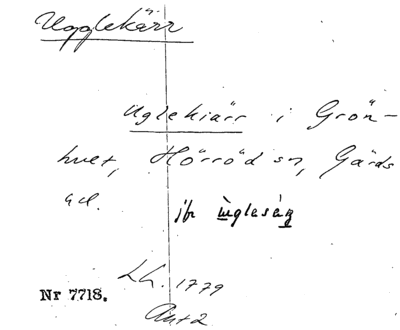 Ugglekärr
Uglekiärr i Grön-
hult, Hörröd sn, Gärds
hd.
jfr ùgleság
Lh. 1779
Nr 7718.
Akt 2